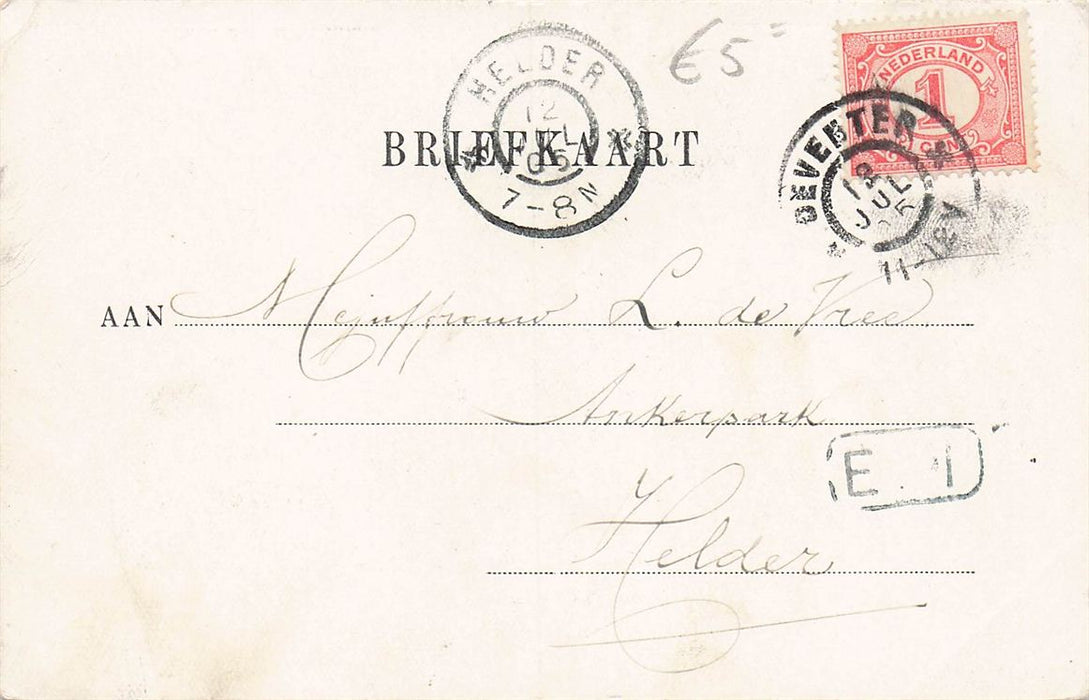 €5=
NEDERLAND
1
CENT
HELDER
12
JUL
05
7-8N
DEVENTER
12
JUL
05
11-12V
BRIEFKAART
AAN Mejuffrouw L. de Vree
Ankerpark
E. 1
Helder